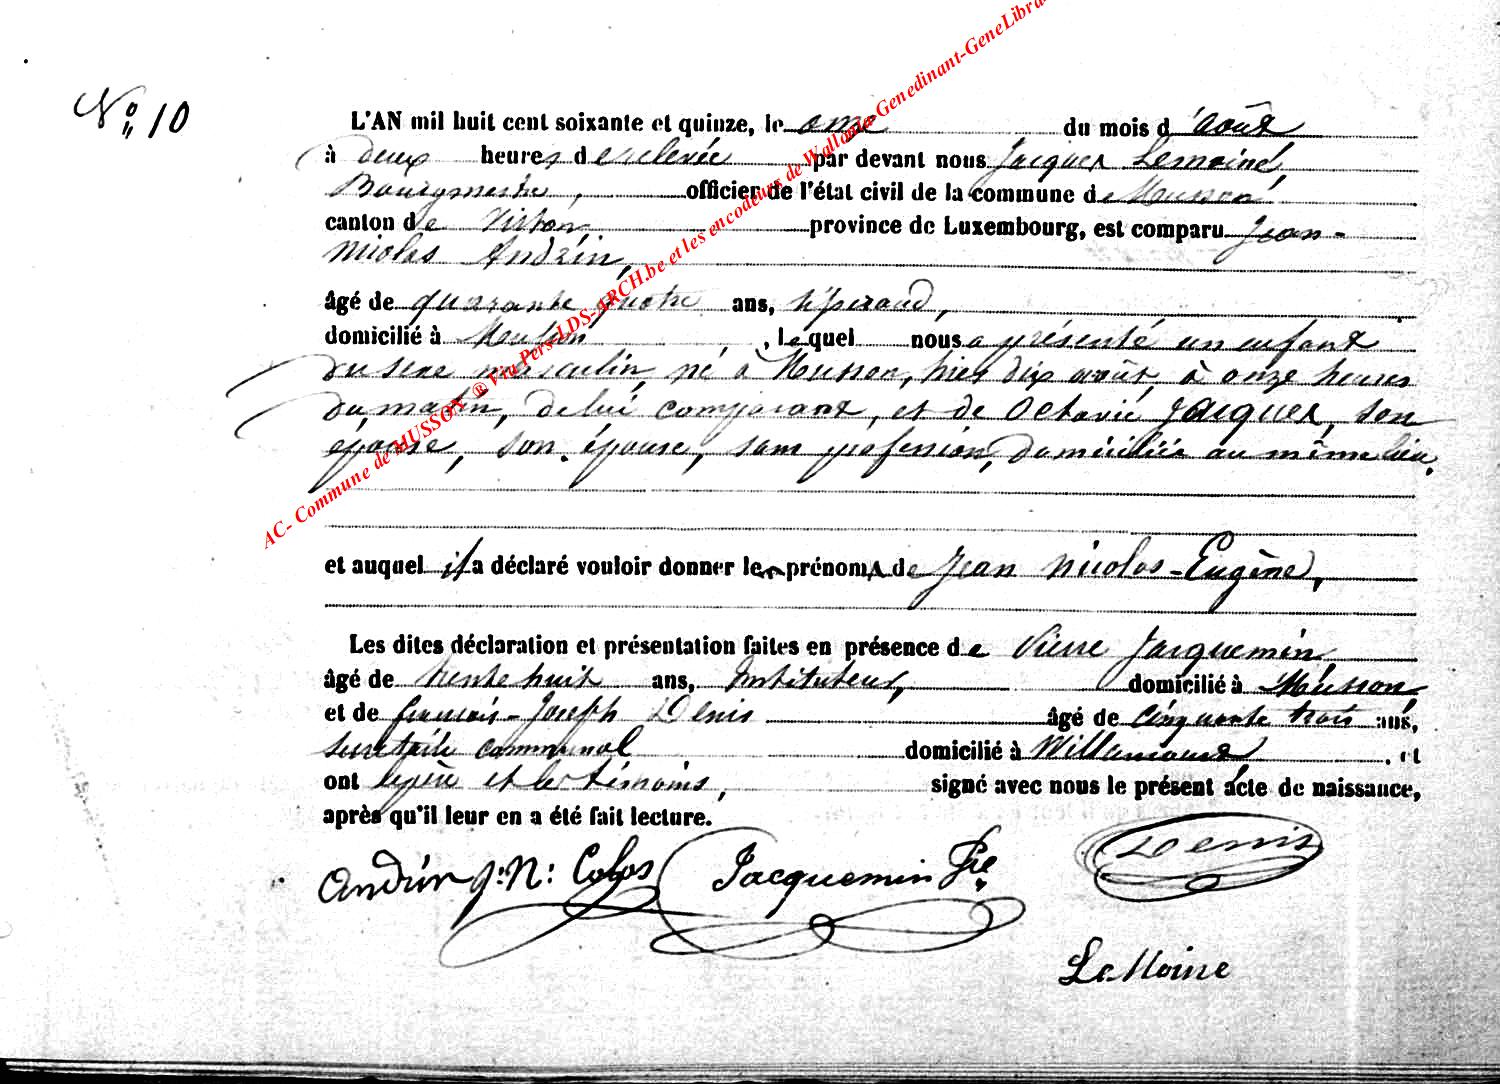 No 10
L'AN mil huit cent soixante et quinze, le onze du mois d'août
à deux heures de relevée par devant nous Jacques Lemoine,
Bourgmestre, officier de l'état civil de la commune de Musson,
canton de Virton, province de Luxembourg, est comparu Jean-
Nicolas Andrin,
âgé de quarante quatre ans,
domicilié à Musson, lequel nous a présenté un enfant
du sexe masculin, né à Musson, hier dix août, à onze heures
du matin, de lui comparant, et de Octavie Jacques, son
épouse, son épouse, sans profession, domiciliée au même lieu.
et auquel il a déclaré vouloir donner les prénoms de Jean Nicolas-Eugène,
Les dites déclaration et présentation faites en présence de Pierre Jacquemin,
âgé de trente huit ans, Instituteur, domicilié à Musson,
et de françois-Joseph Denis âgé de cinquante trois ans,
secrétaire communal domicilié à Willancourt, et
ont le père et les témoins, signé avec nous le présent acte de naissance,
après qu'il leur en a été fait lecture.
Andrin J: N: Colas Jacquemin Pre Denis
LeMoine
AC- Commune de MUSSON ® Via Pers-LDS-ARCH.be et les encodeurs de Wallonia-Genedinant-GeneLibra